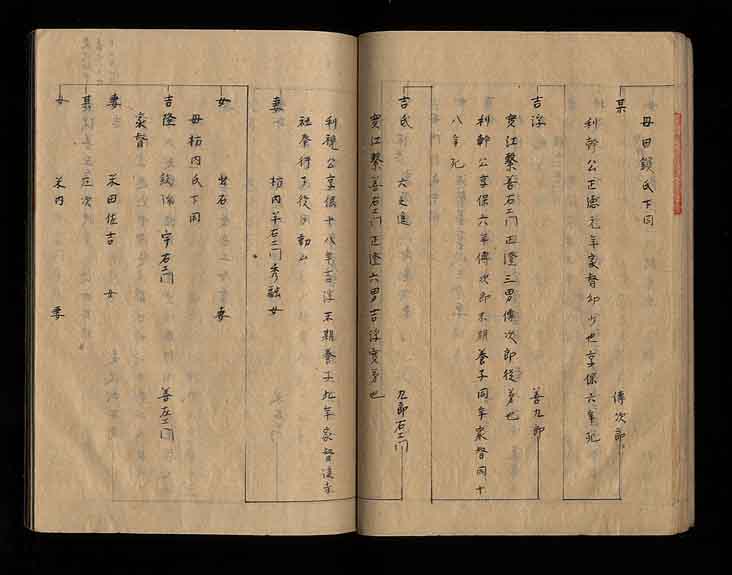 母田鎖氏下同
某 傳次郎
利幹公正德元年家督幼少也享保六年死
吉淳 善九郎
實江繫善右エ門正澄三男傳次郎從弟也
利幹公享保六年傳次郎末期養子同年家督同十
八年死
吉氏 六之進 九郎右エ門
實江繫善右エ門正澄六男吉淳實弟也
利視公享保十八年吉淳末期養子九年家督後寺
社奉行
妻 枋内 右エ門秀融女
女 妻
母枋内氏下同
吉隆 宇右エ門 善左エ門
家督
妻 米田佐吉女
某 左次
女 米内 妻